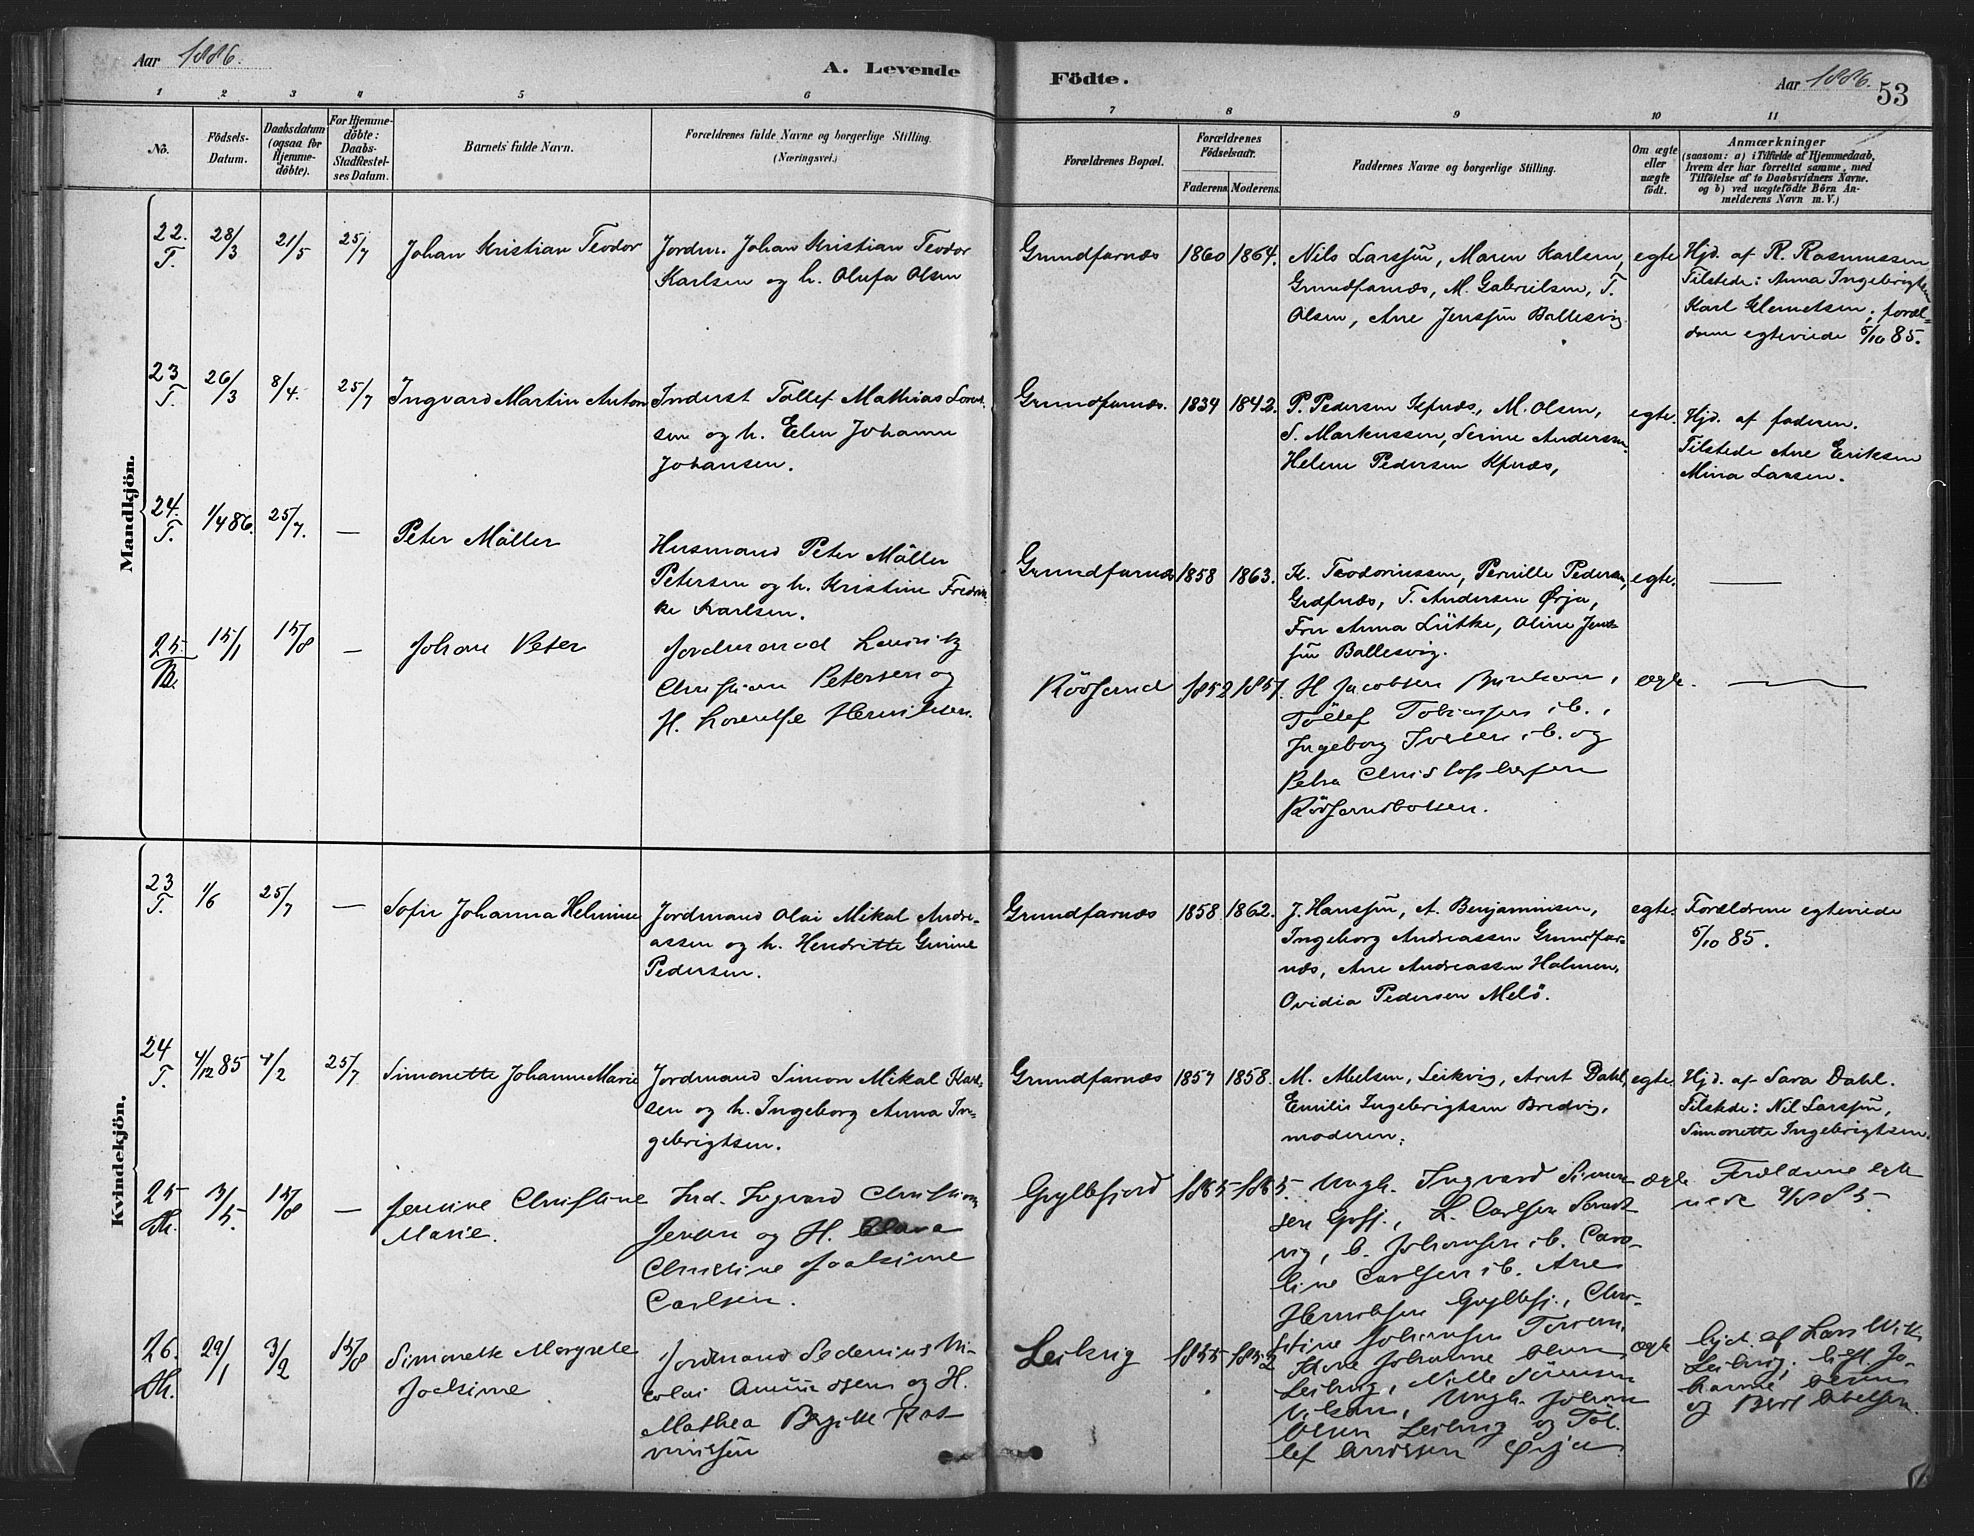 Aar 1886.
A. Levende
Födte.
Aar 1886.
53
1 2 3 4 5 6 7 8 9 10 11
No.
Födsels-
Datum.
Daabsdatum
(ogsaa for
Hjemme-
döbte).
For Hjemme-
döbte:
Daabs-
Stadfæstel-
ses Datum.
Barnets fulde Navn.
Forældrenes fulde Navne og borgerlige Stilling.
(Næringsvei.)
Forældrenes Bopæl.
Forældrenes
Födselsaar.
Faderens. Moderens.
Faddernes Navne og borgerlige Stilling.
Om ægte
eller
uægte
født.
Anmærkninger
(saasom: a) i Tilfælde af Hjemmedaab,
hvem der har forrettet samme, med
Tilföielse af to Daabsvidners Navne.
og b) ved uægtefödte Börn An-
melderens Navn m. V.)
Mandkjön.
22.
T.
28/3
21/5
25/7
Johan Kristian Teodor
Jordm. Johan Kristian Teodor
Karlsen og h. Olufa Olsen
Grundfarnæs
1860
1864.
Nils Larssün, Maren Karlsen,
Grundfarnæs, M. Gabrielsen, T.
Olsen, Ane Jenssün Ballesvig
egte
Hjd. af R. Rasmussen
Tilstede: Anna Ingebrigtsen
Karl Klemetsen; foræl-
drene egteviede 5/10 85.
23
T.
26/3
8/4.
25/7
Ingvard Martin Anton
Inderst Tollef Mathias Loren-
sen og h. Elen Johanne
Johansen.
Grundfarnæs.
1834
1842.
P. Pedersen Kfnæs, M. Olsen,
S. Markussen, Serine Andersen
Helene Pedersen Kfnæs,
egte.
Hjd. af faderen.
Tilstede Ane Eriksen
Mina Larsen.
24.
T.
1/4 86.
25/7.
—
Peter Möller
Husmand Peter Möller
Petersen og h. Kristine Fredrik-
ke Karlsen.
Grundfarnæs
1858
1863.
K. Teodoriussen, Pernille Pedersen,
Grdfnæs, T. Andersen Ørja,
Fru Anna Lütke, Oline Jens-
sün Ballesvig.
egte.
—
25.
15/1
15/8
—
Johan Peter
Jordmand Lauritz
Christian Petersen og
H. Lorentse Henriksen.
Rödsand
1852
1857.
H Jacobsen
Tollef Tobiassen i b.,
Ingeborg Iversen i b. og
Petra Christophersen
Rödsandbotten.
ægte.
—
Kvindekjön.
23
T.
1/6
25/7
—
Sofie Johanna Helmine
Jordmand Olai Mikal Andre-
assen og h. Hendritte Gurine
Pedersen.
Grundfarnæs
1858.
1862.
J. Hanssün, A. Benjaminsen,
Ingeborg Andreassen Grundfar-
næs, Ane Andreassen Holmen,
Ovidia Pedersen Melö.
egte.
Forældrene egteviede
5/10 85.
24
T.
4/12 85
4/2
25/7
Simonette Johanne Marie
Jordmand Simon Mikal Karl-
sen og h. Ingeborg Anna In-
gebrigtsen.
Grundfarnæs
1857
1858.
M. Nielsen, Leikvig, Arnt Dahl,
Emilie Ingebrigtsen Bredvig,
moderen.
egte.
Hjd. af Sara Dahl.
Tilstede: Nil Larssün,
Simonette Ingebrigtsen.
25
Th.
3/5.
15/8
—
Jensine Christine
Marie.
Ind. Ingvard Christian
Jensen og H. Clara
Christine Joakime
Carlsen.
Gryllefjord
1865
1865
Ungk. Ingvard Simon-
sen Grffj., L. Carlsen
C. Johansen i b. Caro-
line Carlsen i b. Ane
Henriksen Gryllefj., Chri-
stine Johansen
ægte
Forældrene egte
26.
Th.
29/1
3/2
15/8
Simonette Margrete
Joakime
Jordmand Sedenius Ni-
colai Amundsen og H.
Mathea Birgitte Ras-
mussen
Leikvig
1855
1852
Johanne Olsen,
Leikvig, Nille Sörensen
Ungk. Johan
Olsen Leikvig og Tol-
lef Andersen Ørja
ægte
hjd. af Lars
Leikvig, Jo-
hanne Olsen
og Berit Abelsen.